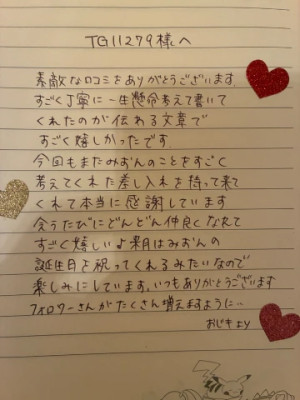 TG11279様へ
素敵な口コミをありがとうございます
すごく丁寧に一生懸命考えて書いて
くれたのが伝わる文章で
すごく嬉しかったです。
今回もまたみおんのことをすごく
考えてくれた差し入れを持って来て
くれて本当に感謝しています
会うたびにどんどん仲良くなれて
すごく嬉しいよ来月はみおんの
誕生日を祝ってくれるみたいなので
楽しみにしています。いつもありがとうございます
フォロワーさんがたくさん増えますように…
おじきより